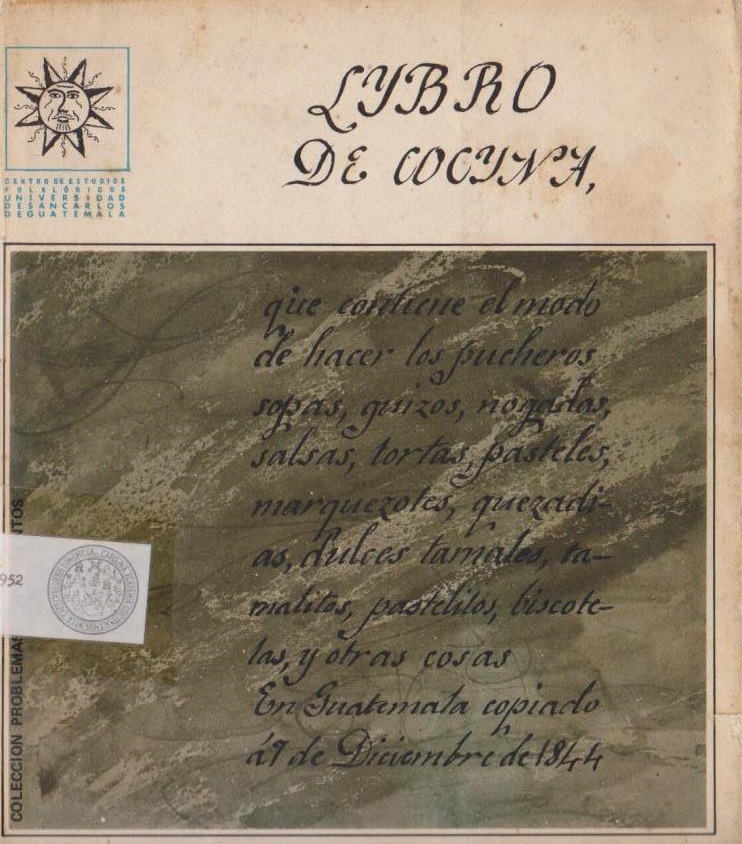 LYBRO
DE COCYNA,
CENTRO DE ESTUDIOS
FOLKLÓRICOS
UNIVERSIDAD
DE SAN CARLOS
DE GUATEMALA
que contiene el modo
de hacer los pucheros
sopas, guizos, nogadas,
salsas, tortas, pasteles,
marquezotes, quezadi-
as, dulces tamales, ta-
malitos, pastelitos, biscote-
las, y otras cosas
En Guatemala copiado
á 7 de Diciembre de 1844
952
COLECCION PROBLEMAS
NTOS